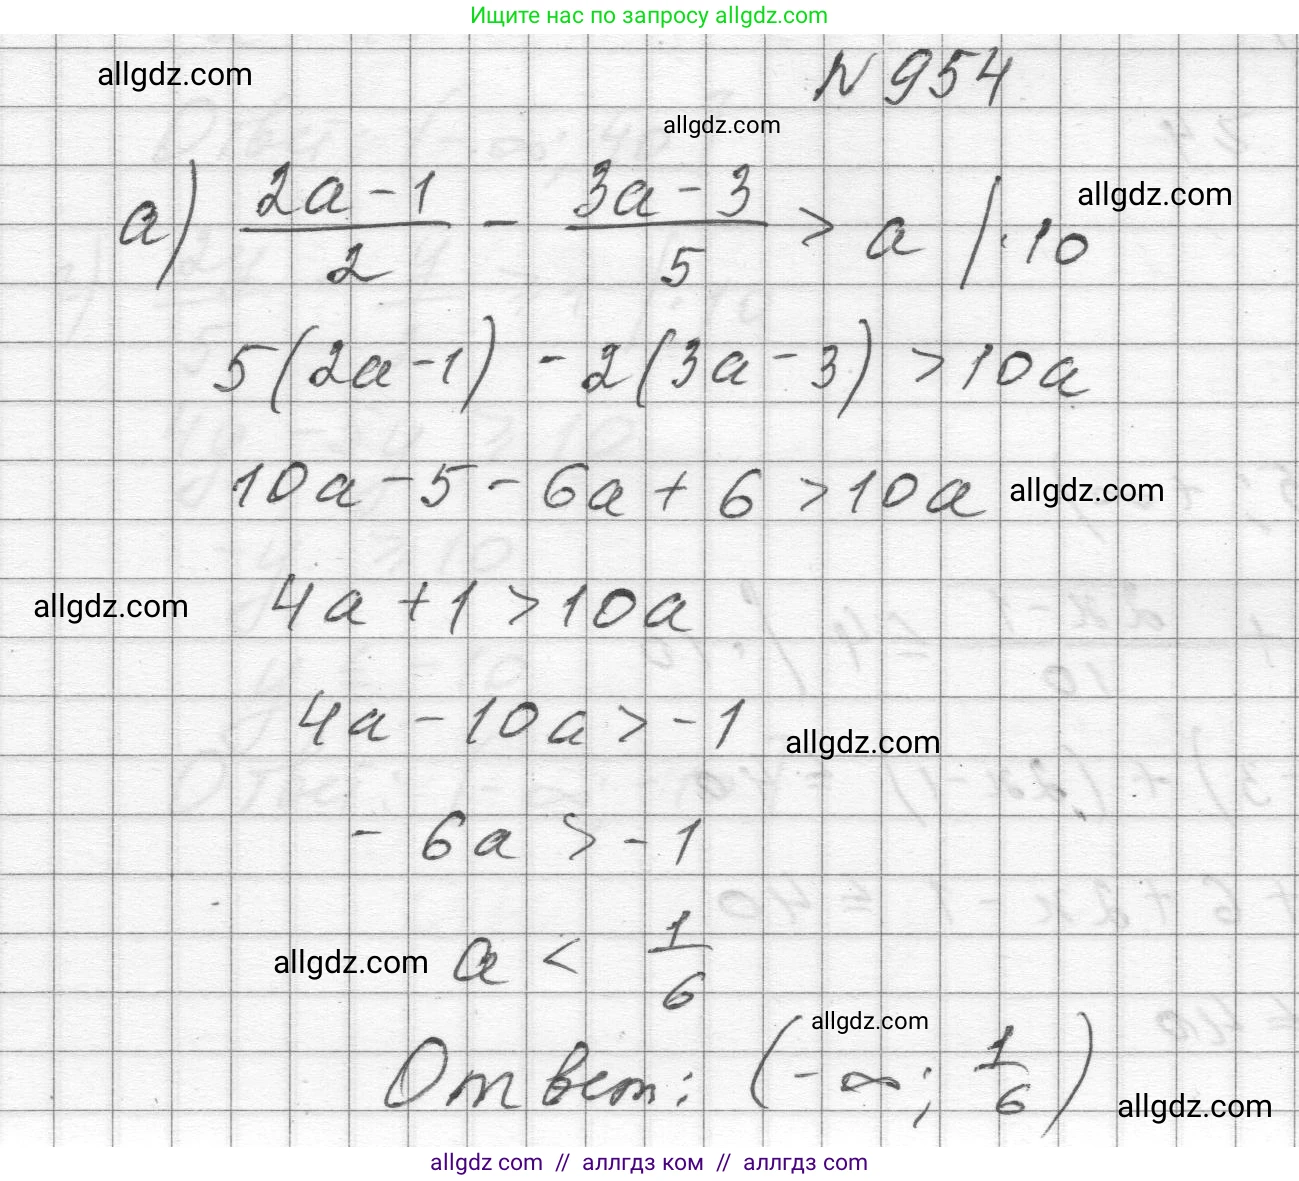 Ищите нас по запросу allgdz.com
allgdz.com
N 954
allgdz.com
а) \frac{2a-1}{2} - \frac{3a-3}{5} > a | ·10
allgdz.com
5(2a-1) - 2(3a-3) > 10a
10a - 5 - 6a + 6 > 10a
allgdz.com
allgdz.com
4a + 1 > 10a
4a - 10a > -1
allgdz.com
- 6a > -1
allgdz.com
a < \frac{1}{6}
allgdz.com
Ответ: (-∞; \frac{1}{6})
allgdz.com
allgdz com // аллгдз ком // аллгдз com